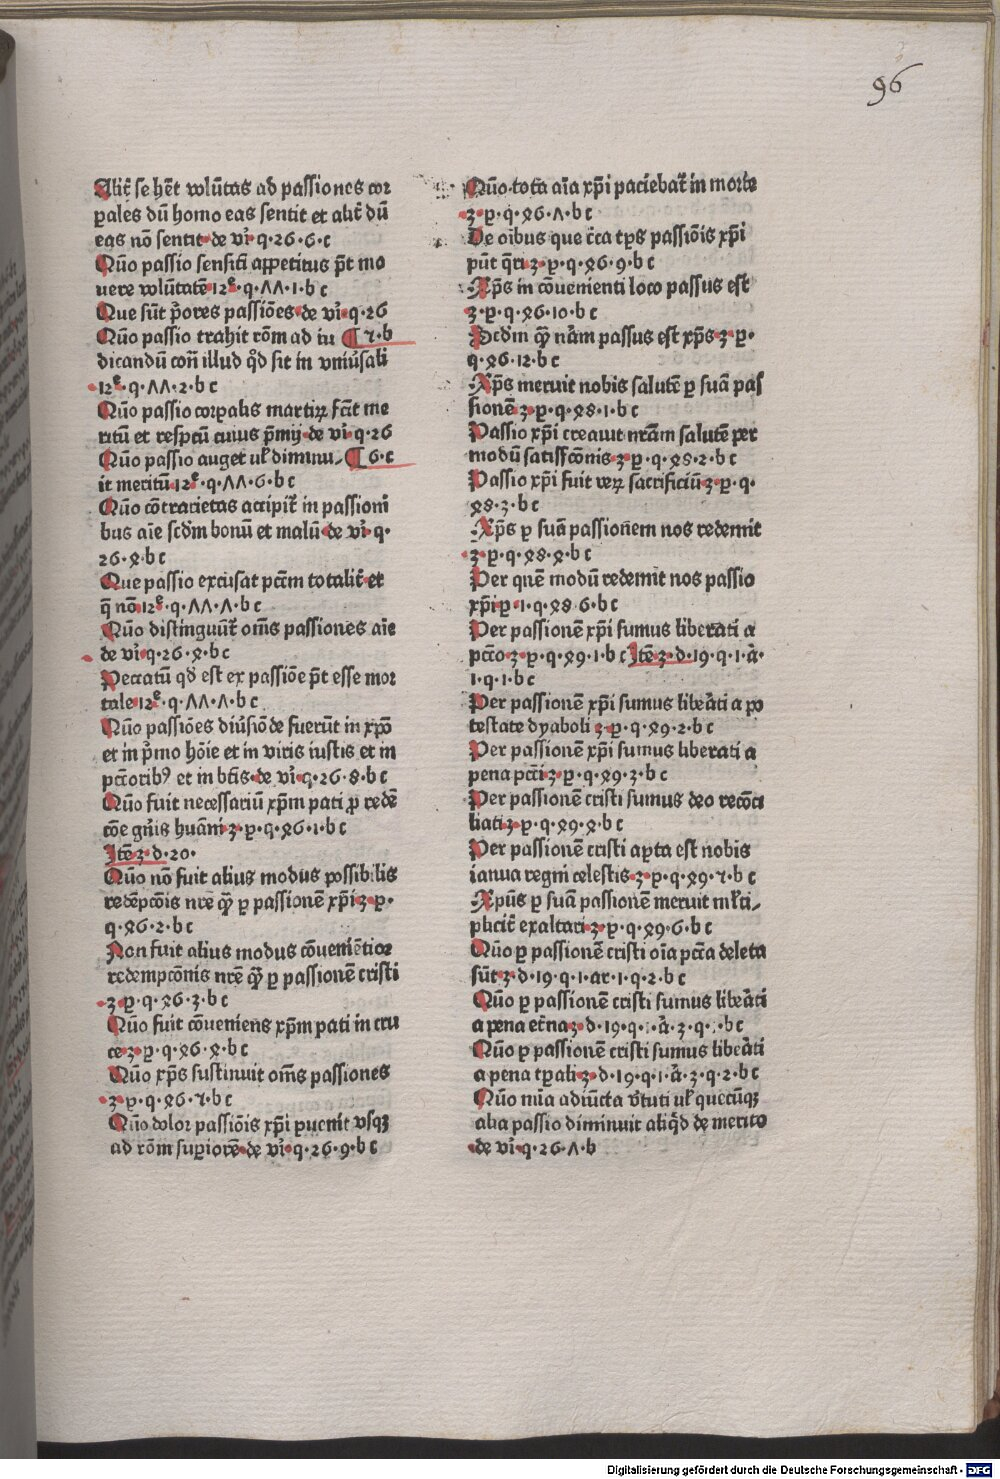 96
Alit̄ se hēt volūtas ad passiones cor
ꝑales dū homo eas sentit et alit̄ dū
eas nō sentit·de vi̓·q·26·6·c
Quō passio sensiti appetitus p̄t mo
uere volūtatē 12ᵉ·q·ΛΛ·1·b c
Que sūt p̄ores passiōes·de vi̓·q·26
Quō passio trahit rōm ad iu ¶ 7·b
dicandū con̄ illud qd̄ sit in vniu̓sali
12ᵉ·q·ΛΛ·2·b c
Quō passio corꝑalis martiꝝ fc̄it me
ritū et respc̄tū cuius p̄mij·de vi̓·q·26
Quō passio auget ul̓ diminu⸗ ¶ 6·c
it meritū·12ᵉ·q·ΛΛ·6·b c
Quō cōtrarietas accipit̄ in passioni
bus aīe scd̄m bonū et malū·de vi̓·q·
26·ꝝ·b c
Que passio excusat pctm̄ totalit̄·et
q̄ nō·12ᵉ·q·ΛΛ·Λ·b c
Quō distinguūt̄ om̄s passiones aīe
de vi̓·q·26·ꝝ·b c
Peccatū qd̄ est ex passiōe p̄t esse mor
tale·12ᵉ·q·ΛΛ·Λ·b c
Quō passiōes diu̓siōde fuerūt in xp̄o
et in p̄mo hōie et in viris iustis et in
pctōribꝰ et in bt̄is·de vi̓·q·26·8·b c
Quō fuit necessariū xp̄m pati ꝓ redē
cōe gn̄is huāni·3·p·q·ꝝ6·1·b c
Itē 3·d·20·
Quō nō fuit alius modus possibilis
redēpcōis nr̄e qꝫ ꝑ passionē xp̄i·3·p·
q·ꝝ6·2·b c
Non fuit alius modus cōueniētior
redempcōnis nr̄e qꝫ ꝑ passionē cristi
3·p·q·ꝝ6·3·b c
Quō fuit cōueniens xp̄m pati in cru
ce·3·p·q·ꝝ6·ꝝ·b c
Quō xp̄s sustinuit om̄s passiones
3·p·q·ꝝ6·7·b c
Quō dolor passiōis xp̄i ꝑuenit vsqꝫ
ad rōm suꝑiorē·de vi̓·q·26·9·b c
Quō tota aīa xp̄i paciebat̄ in morte
3·p·q·ꝝ6·Λ·b c
De oībus que c̄ca tp̄s passiōis xp̄i
pūt q̄ri·3·p·q·ꝝ6·9·b c
Xp̄s in cōuenienti loco passus est
3·p·q·ꝝ6·10·b c
Scdm̄ qꝫ nām passus est xp̄s·3·p·
q·ꝝ6·12·b c
Xp̄s meruit nobis salutē ꝑ suā pas
sionē·3·p·q·ꝝ8·1·b c
Passio xp̄i creauit nr̄am salutē per
modū satisfcōnis·3·p·q·ꝝ8·2·b c
Passio xp̄i fuit veꝝ sacrificiū·3·p·q·
ꝝ8·3·b c
Xp̄s ꝑ suā passionem nos redemit
3·p·q·ꝝ8·ꝝ·b c
Per quē modū redemit nos passio
xp̄i·p·1·q·ꝝ8·6·b c
Per passionē xp̄i sumus liberati a
pctō·3·p·q·ꝝ9·1·b c Itē·3·d·19·q·1·ā·
1·q·1·b c
Per passionē xp̄i sumus libeāti a po
testate dyaboli·3·p·q·ꝝ9·2·b c
Per passionē xp̄i sumus liberati a
pena pctī·3·p·q·ꝝ9·3·b c
Per passionē cristi sumus deo recōci
liati·3·p·q·ꝝ9·ꝝ·b c
Per passionē cristi aꝑta est nobis
ianua regni celestis·3·p·q·ꝝ9·7·b c
Xpūs ꝑ suā passionē meruit ml̄ti⸗
plicit̄ exaltari·3·p·q·ꝝ9·6·b c
Quō ꝑ passionē cristi oīa pctā deleta
sūt·3·d·19·q·1·ar·1·q·2·b c
Quō ꝑ passionē cristi sumus libeāti
a pena et̄na·3·d·19·q·1·ā·3·q·1·b c
Quō ꝑ passionē cristi sumus libeāti
a pena tꝑali·3·d·19·q·1·ā·3·q·2·b c
Quō nīa adiūcta v̄tuti ul̓ quecūqꝫ
alia passio diminuit aliqd̄ de merito
de vi̓·q·26·Λ·b
Digitalisierung gefördert durch die Deutsche Forschungsgemeinschaft - DFG